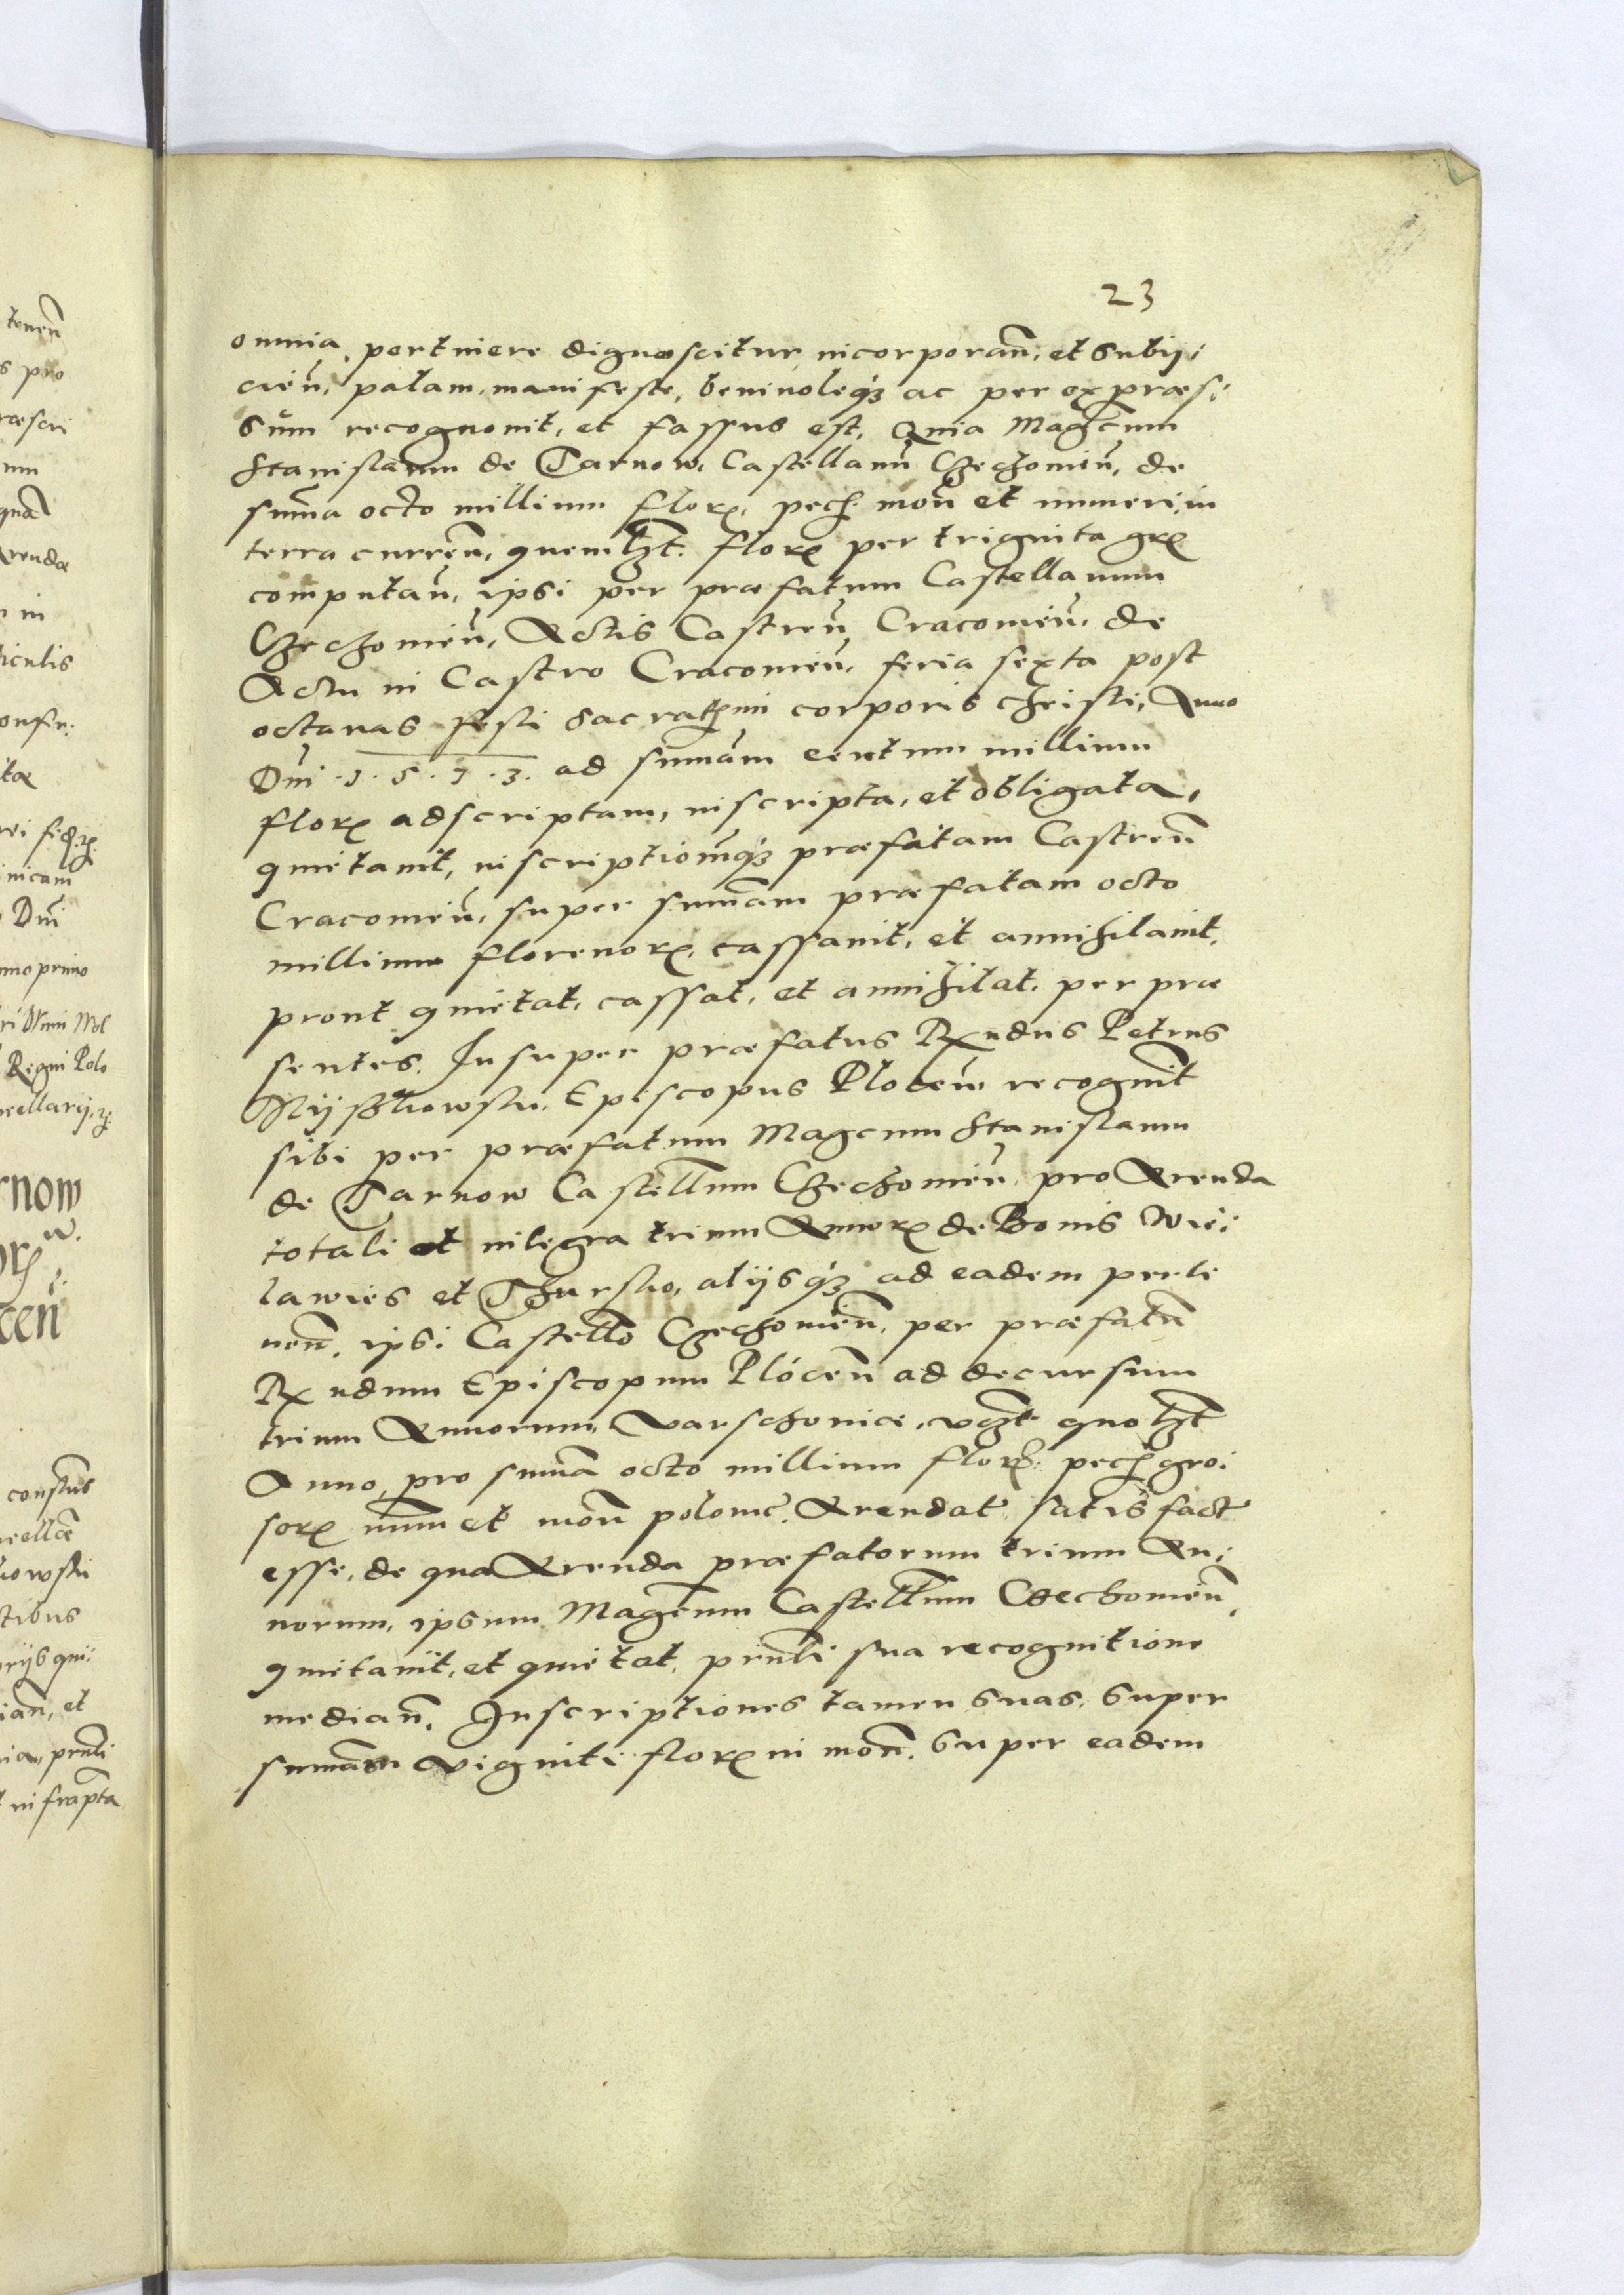 23
omnia, pertinere dignoscitur, incorporan̄, et subiji:
cien̄, palam, manifeste, beniuoleq́ꝫ ac per expræs:
sum recognouit, et fassus est, Quia Magcum
Stanislaum de Tarnow, Castellanū Czechouien̄, de
sum̄a octo millium florꝝ, pecȟ mon̄ et numeri, in
terra curren̄, quemlꝫt florꝝ per triginta grꝝ
computan̄, ipsi per præfatum Castellanum
Czechouien̄, Actis Castren̄ Cracouien̄, de
Actu in Castro Cracouien̄, feria sexta post
octauas festi sacratmi corporis christi, Anno
Dn̄i .1.5.7.3. ad sum̄am centum millium
florꝝ adscriptam, inscripta, et obligata,
quietauit, inscriptionēq́ꝫ præfatam Castren̄
Cracouien̄, super sum̄am præfatam octo
millium florenorꝝ, cassauit, et annihilauit,
prout quietat, cassat, et annihilat, per præ
sentes. Insuper præfatus Rx̄ndus Petrus
Myßkowski, Episcopus Plocen̄ recognouit
sibi per præfatum Magcum Stanislaum
de Tarnow Castellum Czechouien̄ pro Arenda
totali et integra trium Annorꝝ de Bonis Wie:
lawies et Thursko, alijsq́ꝫ ad eadem perti
nen̄, ipsi Castello Czechouien̄, per præfatū
Rx̄ndum Episcopum Plócen̄ ad decursum
trium Annorum, Varschouiæ, vꝫt quolꝫt
Anno, pro sum̄a octo millium florꝝ pecȟ gro:
sorꝝ num̄ et mon̄ polonic̄, Arendat̄ satisfact̄
esse, de qua Arenda præfatorum trium An:
norum, ipsum Magcum Castellum Czechouien̄,
quietauit, et quietat, pn̄ti sua recognitione
median̄, Inscriptiones tamen suas, super
sum̄am viginti florꝝ in mon̄, super eadem